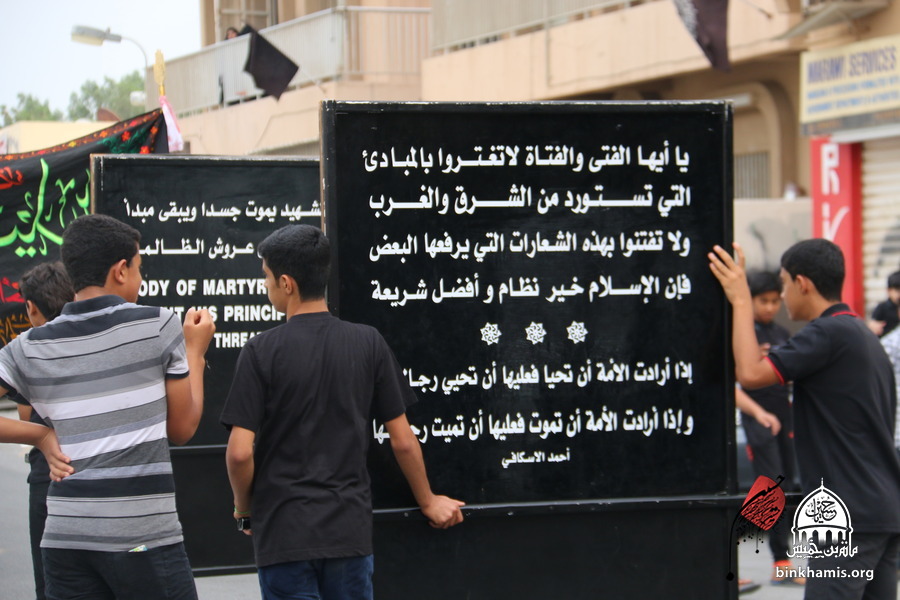 يا أيها الفتى والفتاة لاتغتروا بالمبادئ
التي تستورد من الشرق والغرب
ولا تفتنوا بهذه الشعارات التي يرفعها البعض
فإن الإسلام خير نظام و أفضل شريعة
إذا أرادت الأمة أن تحيا فعليها أن تحيي
وإذا أرادت الأمة أن تموت فعليها أن تميت
أحمد الاسكافي
شهيد يموت جسدا ويبقى مبدأ
عروش الظالم
ODY OF MARTYR
PRINCI
THREAT
MARAWI SERVICES
binkhamis.org